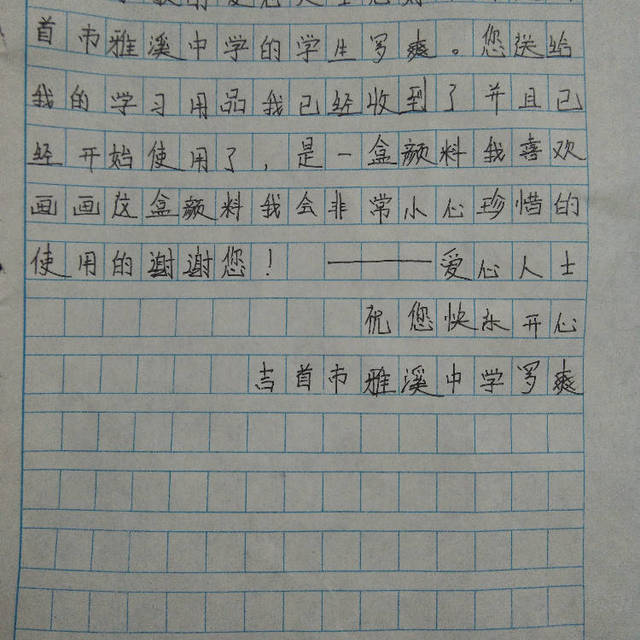 爱心人士您好
首市雅溪中学的学生罗爽。您送给
我的学习用品我已经收到了并且已
经开始使用了，是一盒颜料我喜欢
画画这盒颜料我会非常小心珍惜的
使用的谢谢您！ ———爱心人士
祝您快乐开心
吉首市雅溪中学罗爽